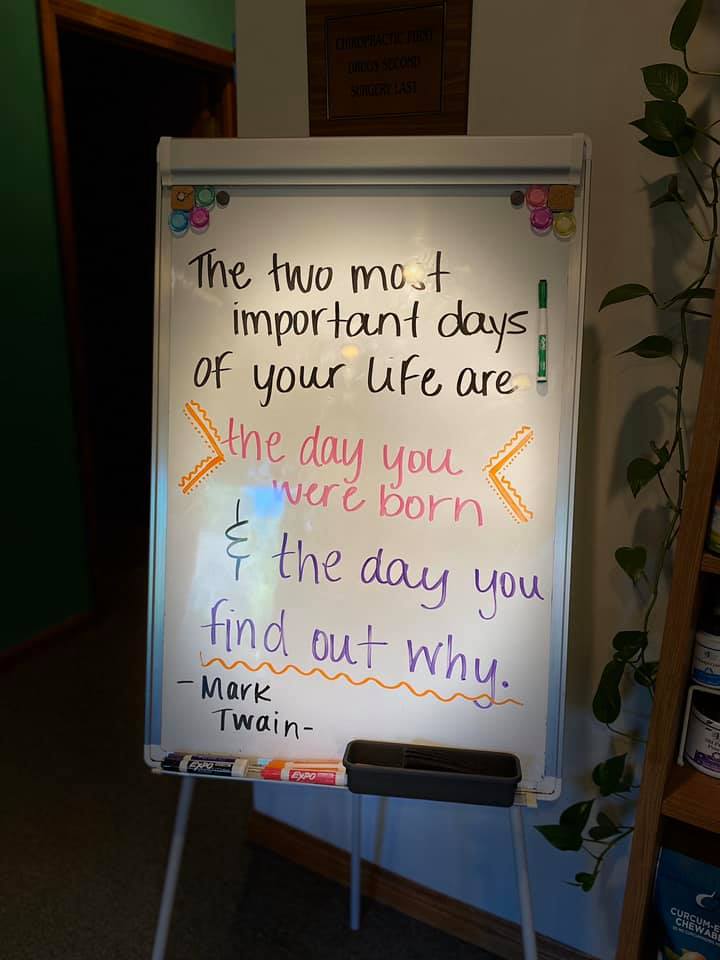 CHIROPRACTIC FIRST
DRUGS SECOND
SURGERY LAST
The two most
important days
of your life are
the day you
were born
& the day you
find out why.
- Mark
Twain -
EXPO
EXPO
CURCUM-E
CHEWAB